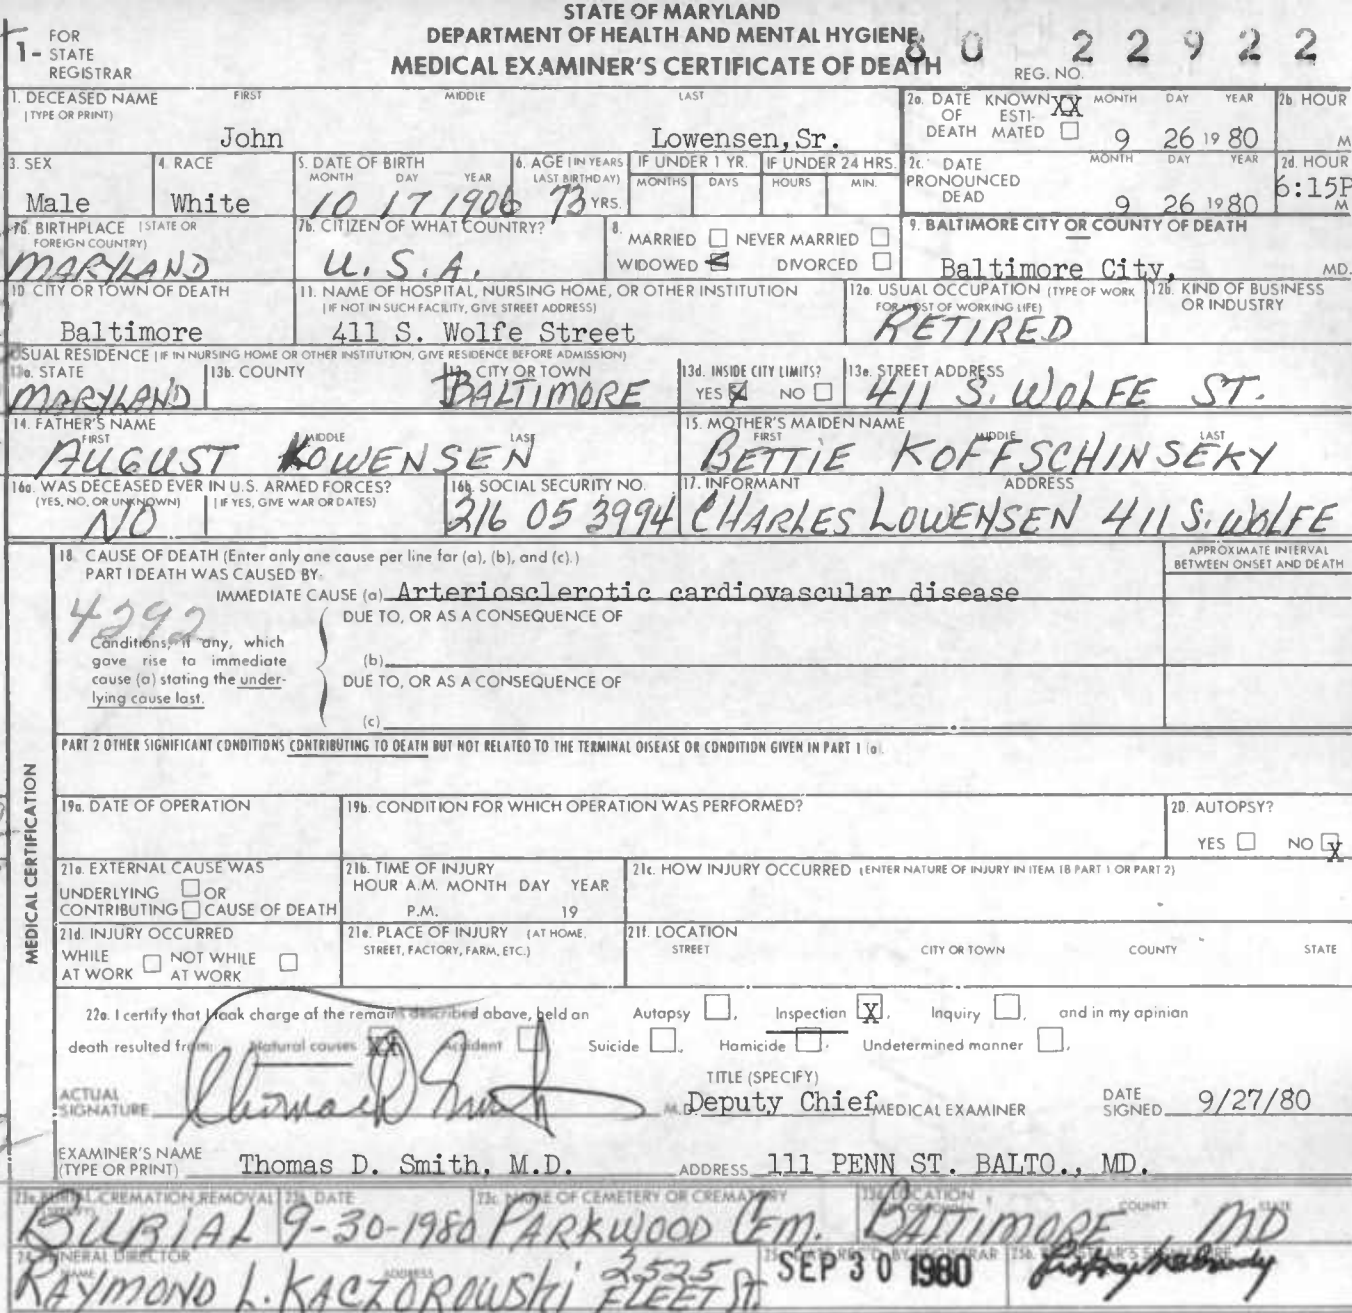 STATE OF MARYLAND
DEPARTMENT OF HEALTH AND MENTAL HYGIENE
MEDICAL EXAMINER'S CERTIFICATE OF DEATH
1- FOR STATE REGISTRAR
REG. NO. 80 22922
1. DECEASED NAME (TYPE OR PRINT) FIRST MIDDLE LAST
John Lowensen, Sr.
2a. DATE OF DEATH KNOWN XX ESTIMATED MONTH DAY YEAR
9 26 19 80
2b HOUR
M
3. SEX
Male
4. RACE
White
5. DATE OF BIRTH
MONTH DAY YEAR
10 17 1906
6. AGE (IN YEARS LAST BIRTHDAY)
73 YRS.
IF UNDER 1 YR.
MONTHS DAYS
IF UNDER 24 HRS.
HOURS MIN.
2c. DATE PRONOUNCED DEAD MONTH DAY YEAR
9 26 1980
2d. HOUR
6:15P
M
BIRTHPLACE (STATE OR FOREIGN COUNTRY)
MARYLAND
7b. CITIZEN OF WHAT COUNTRY?
U.S.A.
8. MARRIED NEVER MARRIED
WIDOWED X DIVORCED
9. BALTIMORE CITY OR COUNTY OF DEATH
Baltimore City, MD.
10 CITY OR TOWN OF DEATH
Baltimore
11. NAME OF HOSPITAL, NURSING HOME, OR OTHER INSTITUTION
(IF NOT IN SUCH FACILITY, GIVE STREET ADDRESS)
411 S. Wolfe Street
12a. USUAL OCCUPATION (TYPE OF WORK
FOR MOST OF WORKING LIFE)
RETIRED
12b. KIND OF BUSINESS OR INDUSTRY
USUAL RESIDENCE (IF IN NURSING HOME OR OTHER INSTITUTION, GIVE RESIDENCE BEFORE ADMISSION)
13a. STATE
MARYLAND
13b. COUNTY
CITY OR TOWN
BALTIMORE
13d. INSIDE CITY LIMITS?
YES X NO
13e. STREET ADDRESS
411 S. WOLFE ST.
14. FATHER'S NAME
FIRST MIDDLE LAST
AUGUST LOWENSEN
15. MOTHER'S MAIDEN NAME
FIRST MIDDLE LAST
BETTIE KOFFSCHINSEKY
16a. WAS DECEASED EVER IN U.S. ARMED FORCES?
(YES, NO, OR UNKNOWN) (IF YES, GIVE WAR OR DATES)
NO
16b. SOCIAL SECURITY NO.
216 05 3994
17. INFORMANT ADDRESS
CHARLES LOWENSEN 411 S. WOLFE
MEDICAL CERTIFICATION
18. CAUSE OF DEATH (Enter only one cause per line for (a), (b), and (c).)
PART I DEATH WAS CAUSED BY:
APPROXIMATE INTERVAL
BETWEEN ONSET AND DEATH
IMMEDIATE CAUSE (a) Arteriosclerotic cardiovascular disease
4292
DUE TO, OR AS A CONSEQUENCE OF
Conditions, if any, which
gave rise to immediate
cause (a) stating the under-
lying cause last.
(b)
DUE TO, OR AS A CONSEQUENCE OF
(c)
PART 2 OTHER SIGNIFICANT CONDITIONS CONTRIBUTING TO DEATH BUT NOT RELATED TO THE TERMINAL DISEASE OR CONDITION GIVEN IN PART 1 (a).
19a. DATE OF OPERATION
19b. CONDITION FOR WHICH OPERATION WAS PERFORMED?
20. AUTOPSY?
YES NO X
21a. EXTERNAL CAUSE WAS
UNDERLYING OR
CONTRIBUTING CAUSE OF DEATH
21b. TIME OF INJURY
HOUR A.M. MONTH DAY YEAR
P.M. 19
21c. HOW INJURY OCCURRED (ENTER NATURE OF INJURY IN ITEM 18 PART 1 OR PART 2)
21d. INJURY OCCURRED
WHILE AT WORK NOT WHILE AT WORK
21e. PLACE OF INJURY (AT HOME,
STREET, FACTORY, FARM, ETC.)
21f. LOCATION
STREET CITY OR TOWN COUNTY STATE
22a. I certify that I took charge of the remains described above, held an Autopsy, Inspection X, Inquiry, and in my opinion
death resulted from: Natural causes XX Accident Suicide, Homicide, Undetermined manner.
ACTUAL SIGNATURE Thomas D Smith M.D.
TITLE (SPECIFY)
Deputy Chief MEDICAL EXAMINER
DATE SIGNED 9/27/80
EXAMINER'S NAME
(TYPE OR PRINT) Thomas D. Smith, M.D.
ADDRESS 111 PENN ST. BALTO., MD.
23a. BURIAL, CREMATION, REMOVAL
BURIAL
23b. DATE
9-30-1980
23c. NAME OF CEMETERY OR CREMATORY
PARKWOOD CEM.
23d. LOCATION COUNTY STATE
BALTIMORE MD
24. FUNERAL DIRECTOR
NAME ADDRESS
RAYMOND L. KACZOROWSKI 2525 FLEET ST.
25a. DATE REC'D BY REGISTRAR
SEP 30 1980
25b. REGISTRAR'S SIGNATURE